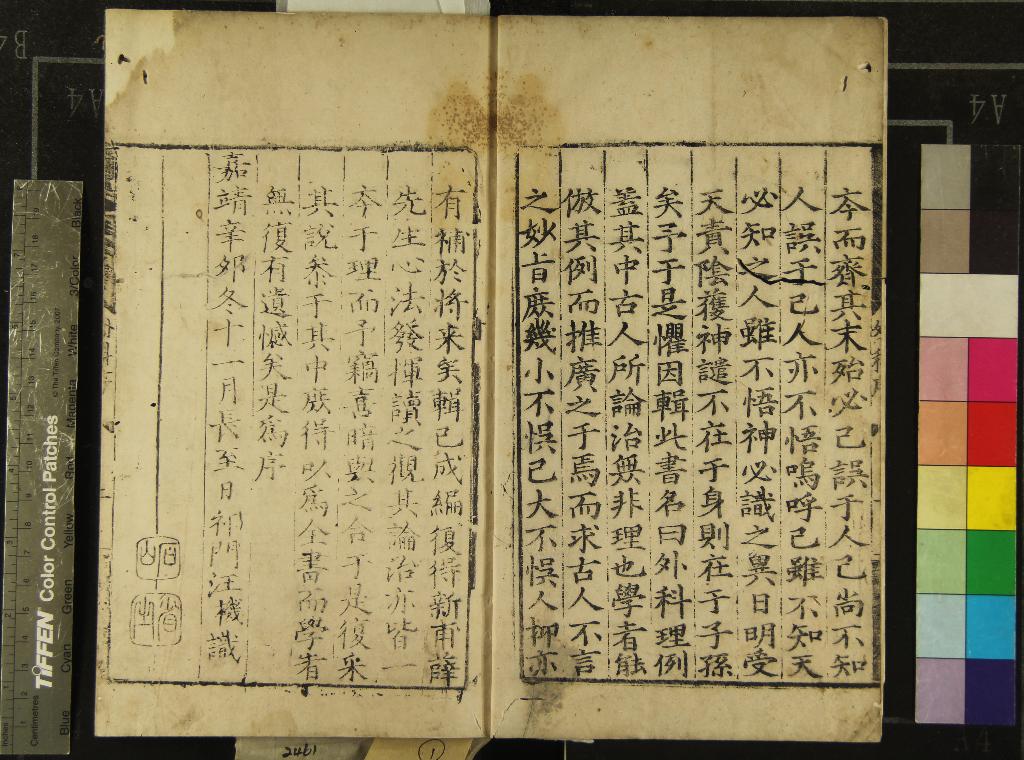 夲而齊其末殆必己誤于人己尚不知
人誤于己人亦不悟嗚呼己雖不知天
必知之人雖不悟神必識之異日明受
天責陰獲神譴不在于身則在于子孫
矣予于是懼因輯此書名曰外科理例
盖其中古人所論治無非理也學者能
倣其例而推廣之于焉而求古人不言
之妙旨庻幾小不悞己大不悞人抑亦
有補於將来矣輯已成編復得新甫薛
先生心法發揮讀之觀其論治亦皆一
夲于理而予竊喜暗與之合于是復采
其說叅于其中庻得以為全書而學者
無復有遺憾矣是為序
嘉靖辛夘冬十一月長至日祁門汪機識
石山
省之
A4
A4
A4
B4
Inches
Centimetres
TIFFEN Color Control Patches
© The Tiffen Company, 2007
Blue
Cyan
Green
Yellow
Red
Magenta
White
3/Color
Black
2461
1